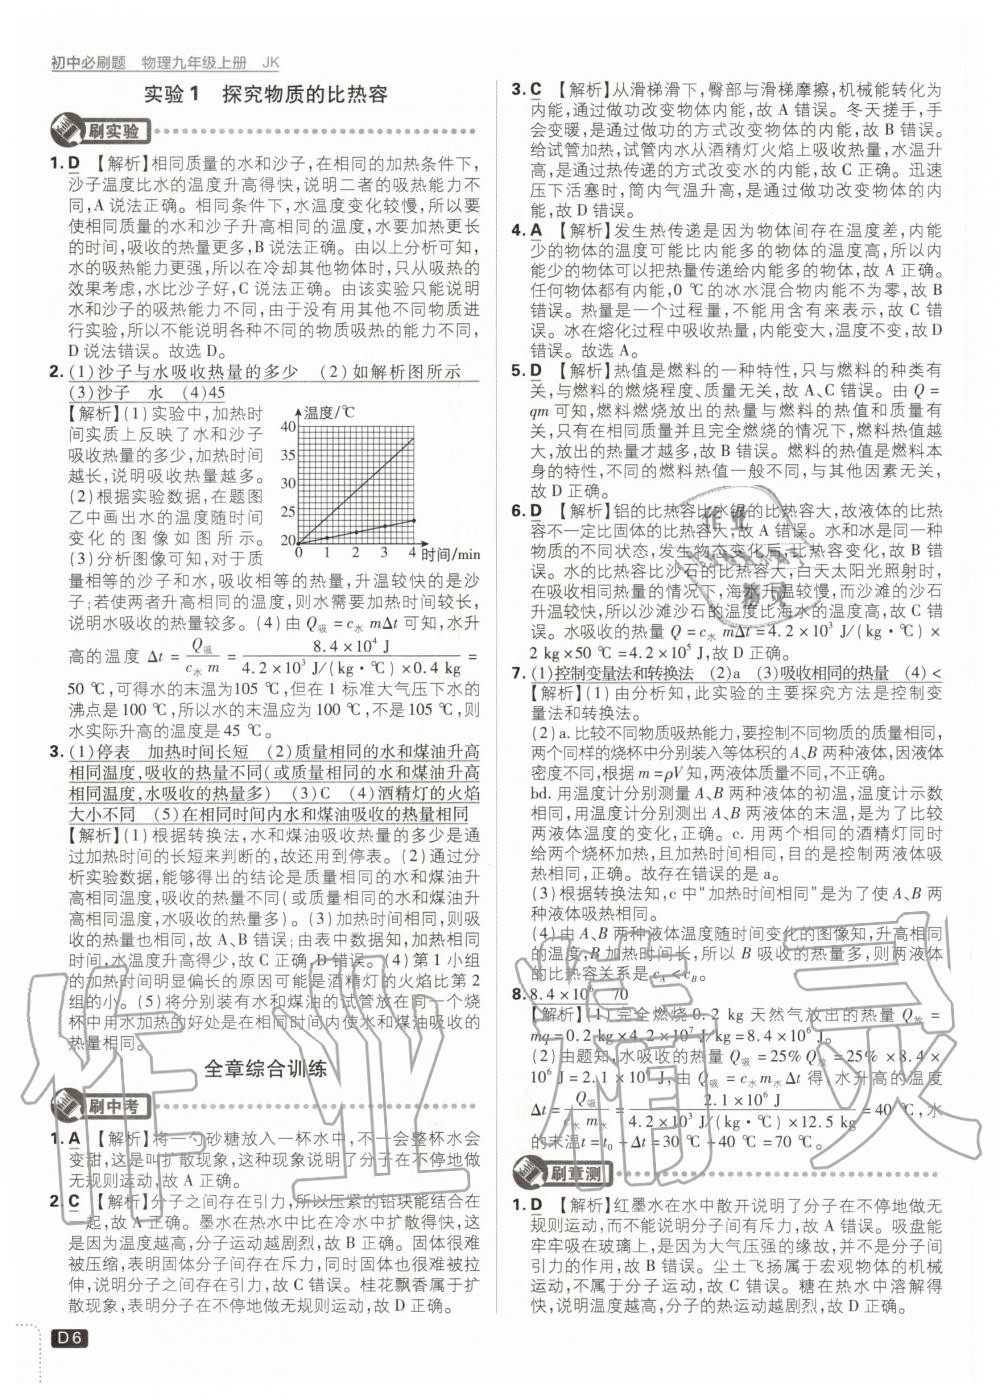 初中必刷题　物理九年级上册　JK
实验1　探究物质的比热容
刷实验
1. D 【解析】相同质量的水和沙子,在相同的加热条件下,
沙子温度比水的温度升高得快,说明二者的吸热能力不
同,A 说法正确。相同条件下,水温度变化较慢,所以要
使相同质量的水和沙子升高相同的温度,水要加热更长
的时间,吸收的热量更多,B 说法正确。由以上分析可知,
水的吸热能力更强,所以在冷却其他物体时,只从吸热的
效果考虑,水比沙子好,C 说法正确。由该实验只能说明
水和沙子的吸热能力不同,由于没有用其他不同物质进
行实验,所以不能说明各种不同的物质吸热的能力不同,
D 说法错误。故选 D。
2. (1)沙子与水吸收热量的多少　(2)如解析图所示
(3)沙子　水　(4)45
【解析】(1)实验中,加热时
间实质上反映了水和沙子
吸收热量的多少,加热时间
越长,说明吸收热量越多。
(2)根据实验数据,在题图
乙中画出水的温度随时间
变化的图像如图所示。
(3)分析图像可知,对于质
温度/℃
40
35
30
25
20
0 1 2 3 4 时间/min
量相等的沙子和水,吸收相等的热量,升温较快的是沙
子;若使两者升高相同的温度,则水需要加热时间较长,
说明水吸收的热量较多。(4)由 Q吸 = c水 mΔt 可知,水升
高的温度 Δt = Q吸/(c水 m) = 8.4×10⁴ J/(4.2×10³ J/(kg·℃)×0.4 kg) =
50 ℃,可得水的末温为105 ℃,但在 1 标准大气压下水的
沸点是 100 ℃,所以水的末温应为 100 ℃,不是 105 ℃,则
水实际升高的温度是 45 ℃。
3. (1)停表　加热时间长短　(2)质量相同的水和煤油升高
相同温度,吸收的热量不同(或质量相同的水和煤油升高
相同温度,水吸收的热量多)　(3)C　(4)酒精灯的火焰
大小不同　(5)在相同时间内水和煤油吸收的热量相同
【解析】(1)根据转换法,水和煤油吸收热量的多少是通
过加热时间的长短来判断的,故还用到停表。(2)通过分
析实验数据,能够得出的结论是质量相同的水和煤油升
高相同温度,吸收的热量不同(或质量相同的水和煤油升
高相同温度,水吸收的热量多)。(3)加热时间相同,则吸
收的热量也相同,故 A、B 错误;由表中数据知,加热相同
时间,水温度升高得少,故 C 正确,D 错误。(4)第 1 小组
的加热时间明显偏长的原因可能是酒精灯的火焰比第 2
组的小。(5)将分别装有水和煤油的试管放在同一个烧
杯中用水加热的好处是在相同时间内使水和煤油吸收的
热量相同。
全章综合训练
刷中考
1. A 【解析】将一勺砂糖放入一杯水中,不一会整杯水会
变甜,这是叫扩散现象,这种现象说明了分子在不停地做
无规则运动,故 A 正确。
2. C 【解析】分子之间存在引力,所以压紧的铅块能结合在
一起,故 A 正确。墨水在热水中比在冷水中扩散得快,这
是因为温度越高,分子运动越剧烈,故 B 正确。固体很难
被压缩,表明固体分子间存在斥力,同时固体也很难被拉
伸,说明分子之间存在引力,故 C 错误。桂花飘香属于扩
散现象,表明分子在不停地做无规则运动,故 D 正确。
D6
3. C 【解析】从滑梯滑下,臀部与滑梯摩擦,机械能转化为
内能,通过做功改变物体内能,故 A 错误。冬天搓手,手
会变暖,是通过做功的方式改变物体的内能,故 B 错误。
给试管加热,试管内水从酒精灯火焰上吸收热量,水温升
高,是通过热传递的方式改变水的内能,故 C 正确。迅速
压下活塞时,筒内气温升高,是通过做功改变物体的内
能,故 D 错误。
4. A 【解析】发生热传递是因为物体间存在温度差,内能
少的物体的温度可能比内能多的物体的温度高,所以内
能少的物体可以把热量传递给内能多的物体,故 A 正确。
任何物体都有内能,0 ℃的冰水混合物内能不为零,故 B
错误。热量是一个过程量,不能用含有来表示,故 C 错
误。冰在熔化过程中吸收热量,内能变大,温度不变,故 D
错误。故选 A。
5. D 【解析】热值是燃料的一种特性,只与燃料的种类有
关,与燃料的燃烧程度、质量无关,故 A、C 错误。由 Q =
qm 可知,燃料燃烧放出的热量与燃料的热值和质量有
关,只有在相同质量并且完全燃烧的情况下,燃料热值越
大,放出的热量才越多,故 B 错误。燃料的热值是燃料本
身的特性,不同的燃料热值一般不同,与其他因素无关,
故 D 正确。
6. D 【解析】铝的比热容比水银的比热容大,故液体的比热
容不一定比固体的比热容大,故 A 错误。水和冰是同一种
物质的不同状态,发生物态变化后,比热容变化,故 B 错
误。水的比热容比沙石的比热容大,白天太阳光照射时,
在吸收相同热量的情况下,海水升温较慢,而沙滩的沙石
升温较快,所以沙滩沙石的温度比海水的温度高,故 C 错
误。水吸收的热量 Q = c水 mΔt = 4.2×10³ J/(kg·℃)×
2 kg×50 ℃ = 4.2×10⁵ J,故 D 正确。
7. (1)控制变量法和转换法　(2)a　(3)吸收相同的热量　(4)<
【解析】(1)由分析知,此实验的主要探究方法是控制变
量法和转换法。
(2)a. 比较不同物质吸热能力,要控制不同物质的质量相同,
两个同样的烧杯中分别装入等体积的 A、B 两种液体,因液体
密度不同,根据 m = ρV 知,两液体质量不同,不正确。
bd. 用温度计分别测量 A、B 两种液体的初温,温度计示数
相同,用温度计分别测出 A、B 两液体的末温,是为了比较
两液体温度的变化,正确。c. 用两个相同的酒精灯同时
给两个烧杯加热,且加热时间相同,目的是控制两液体吸
热相同,正确。故存在错误的是 a。
(3)根据转换法知,c 中“加热时间相同”是为了使 A、B 两
种液体吸热相同。
(4)由 A、B 两种液体温度随时间变化的图像知,升高相同
的温度,B 加热时间长,所以 B 吸收的热量多,则两液体
的比热容关系是 cA < cB。
8. 8.4×10⁶　70
【解析】(1)完全燃烧 0.2 kg 天然气放出的热量 Q放 =
mq = 0.2 kg×4.2×10⁷ J/kg = 8.4×10⁶ J。
(2)由题知,水吸收的热量 Q吸 = 25% Q放 = 25%×8.4×
10⁶ J = 2.1×10⁶ J,由 Q吸 = c水 m水 Δt 得,水升高的温度
Δt = Q吸/(c水 m水) = 2.1×10⁶ J/(4.2×10³ J/(kg·℃)×12.5 kg) = 40 ℃,水
的末温 t = t₀ + Δt = 30 ℃ + 40 ℃ = 70 ℃。
刷章测
1. D 【解析】红墨水在水中散开说明了分子在不停地做无
规则运动,而不能说明分子间有斥力,故 A 错误。吸盘能
牢牢吸在玻璃上,是因为大气压强的缘故,并不是分子间
引力的作用,故 B 错误。尘土飞扬属于宏观物体的机械
运动,不属于分子运动,故 C 错误。糖在热水中溶解得
快,说明温度越高,分子的热运动越剧烈,故 D 正确。
作业精灵